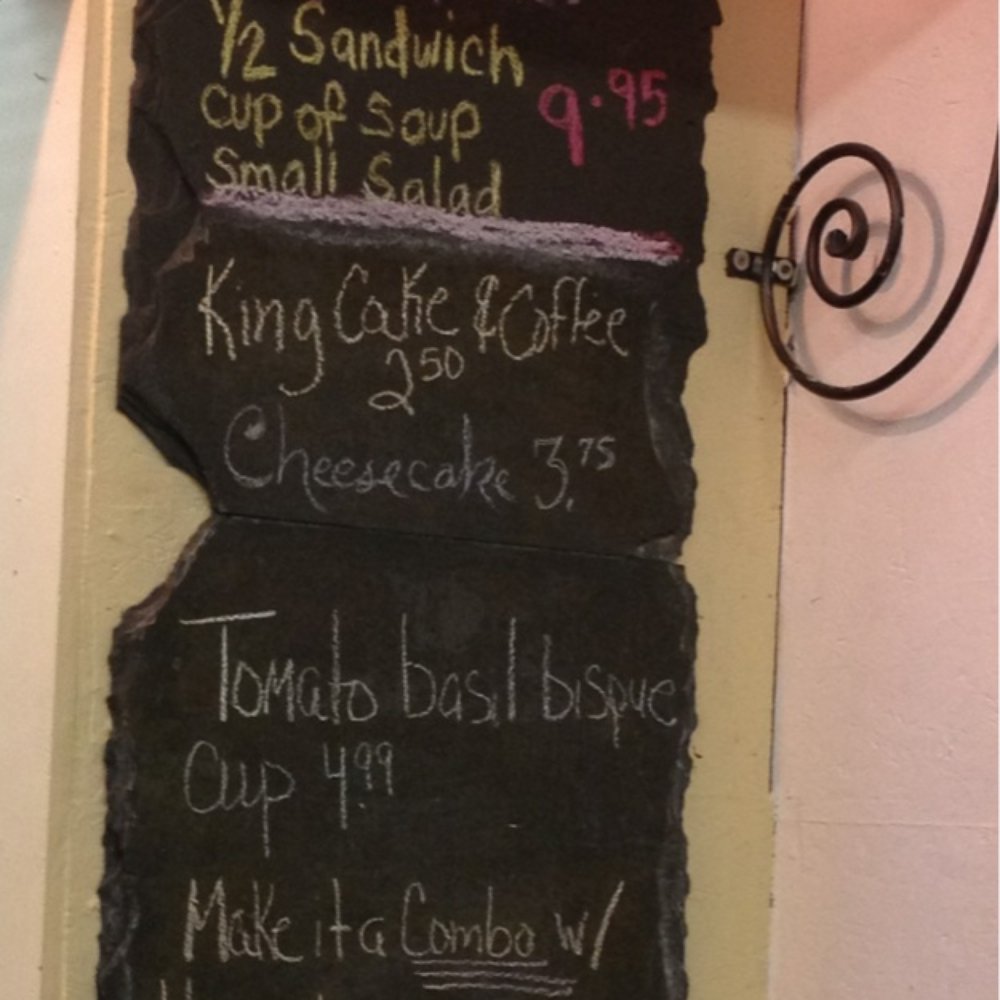 1/2 Sandwich
Cup of Soup 9.95
Small Salad
King Cake & Coffee
2.50
Cheesecake 3.75
Tomato basil bisque
Cup 4.99
Make it a Combo w/